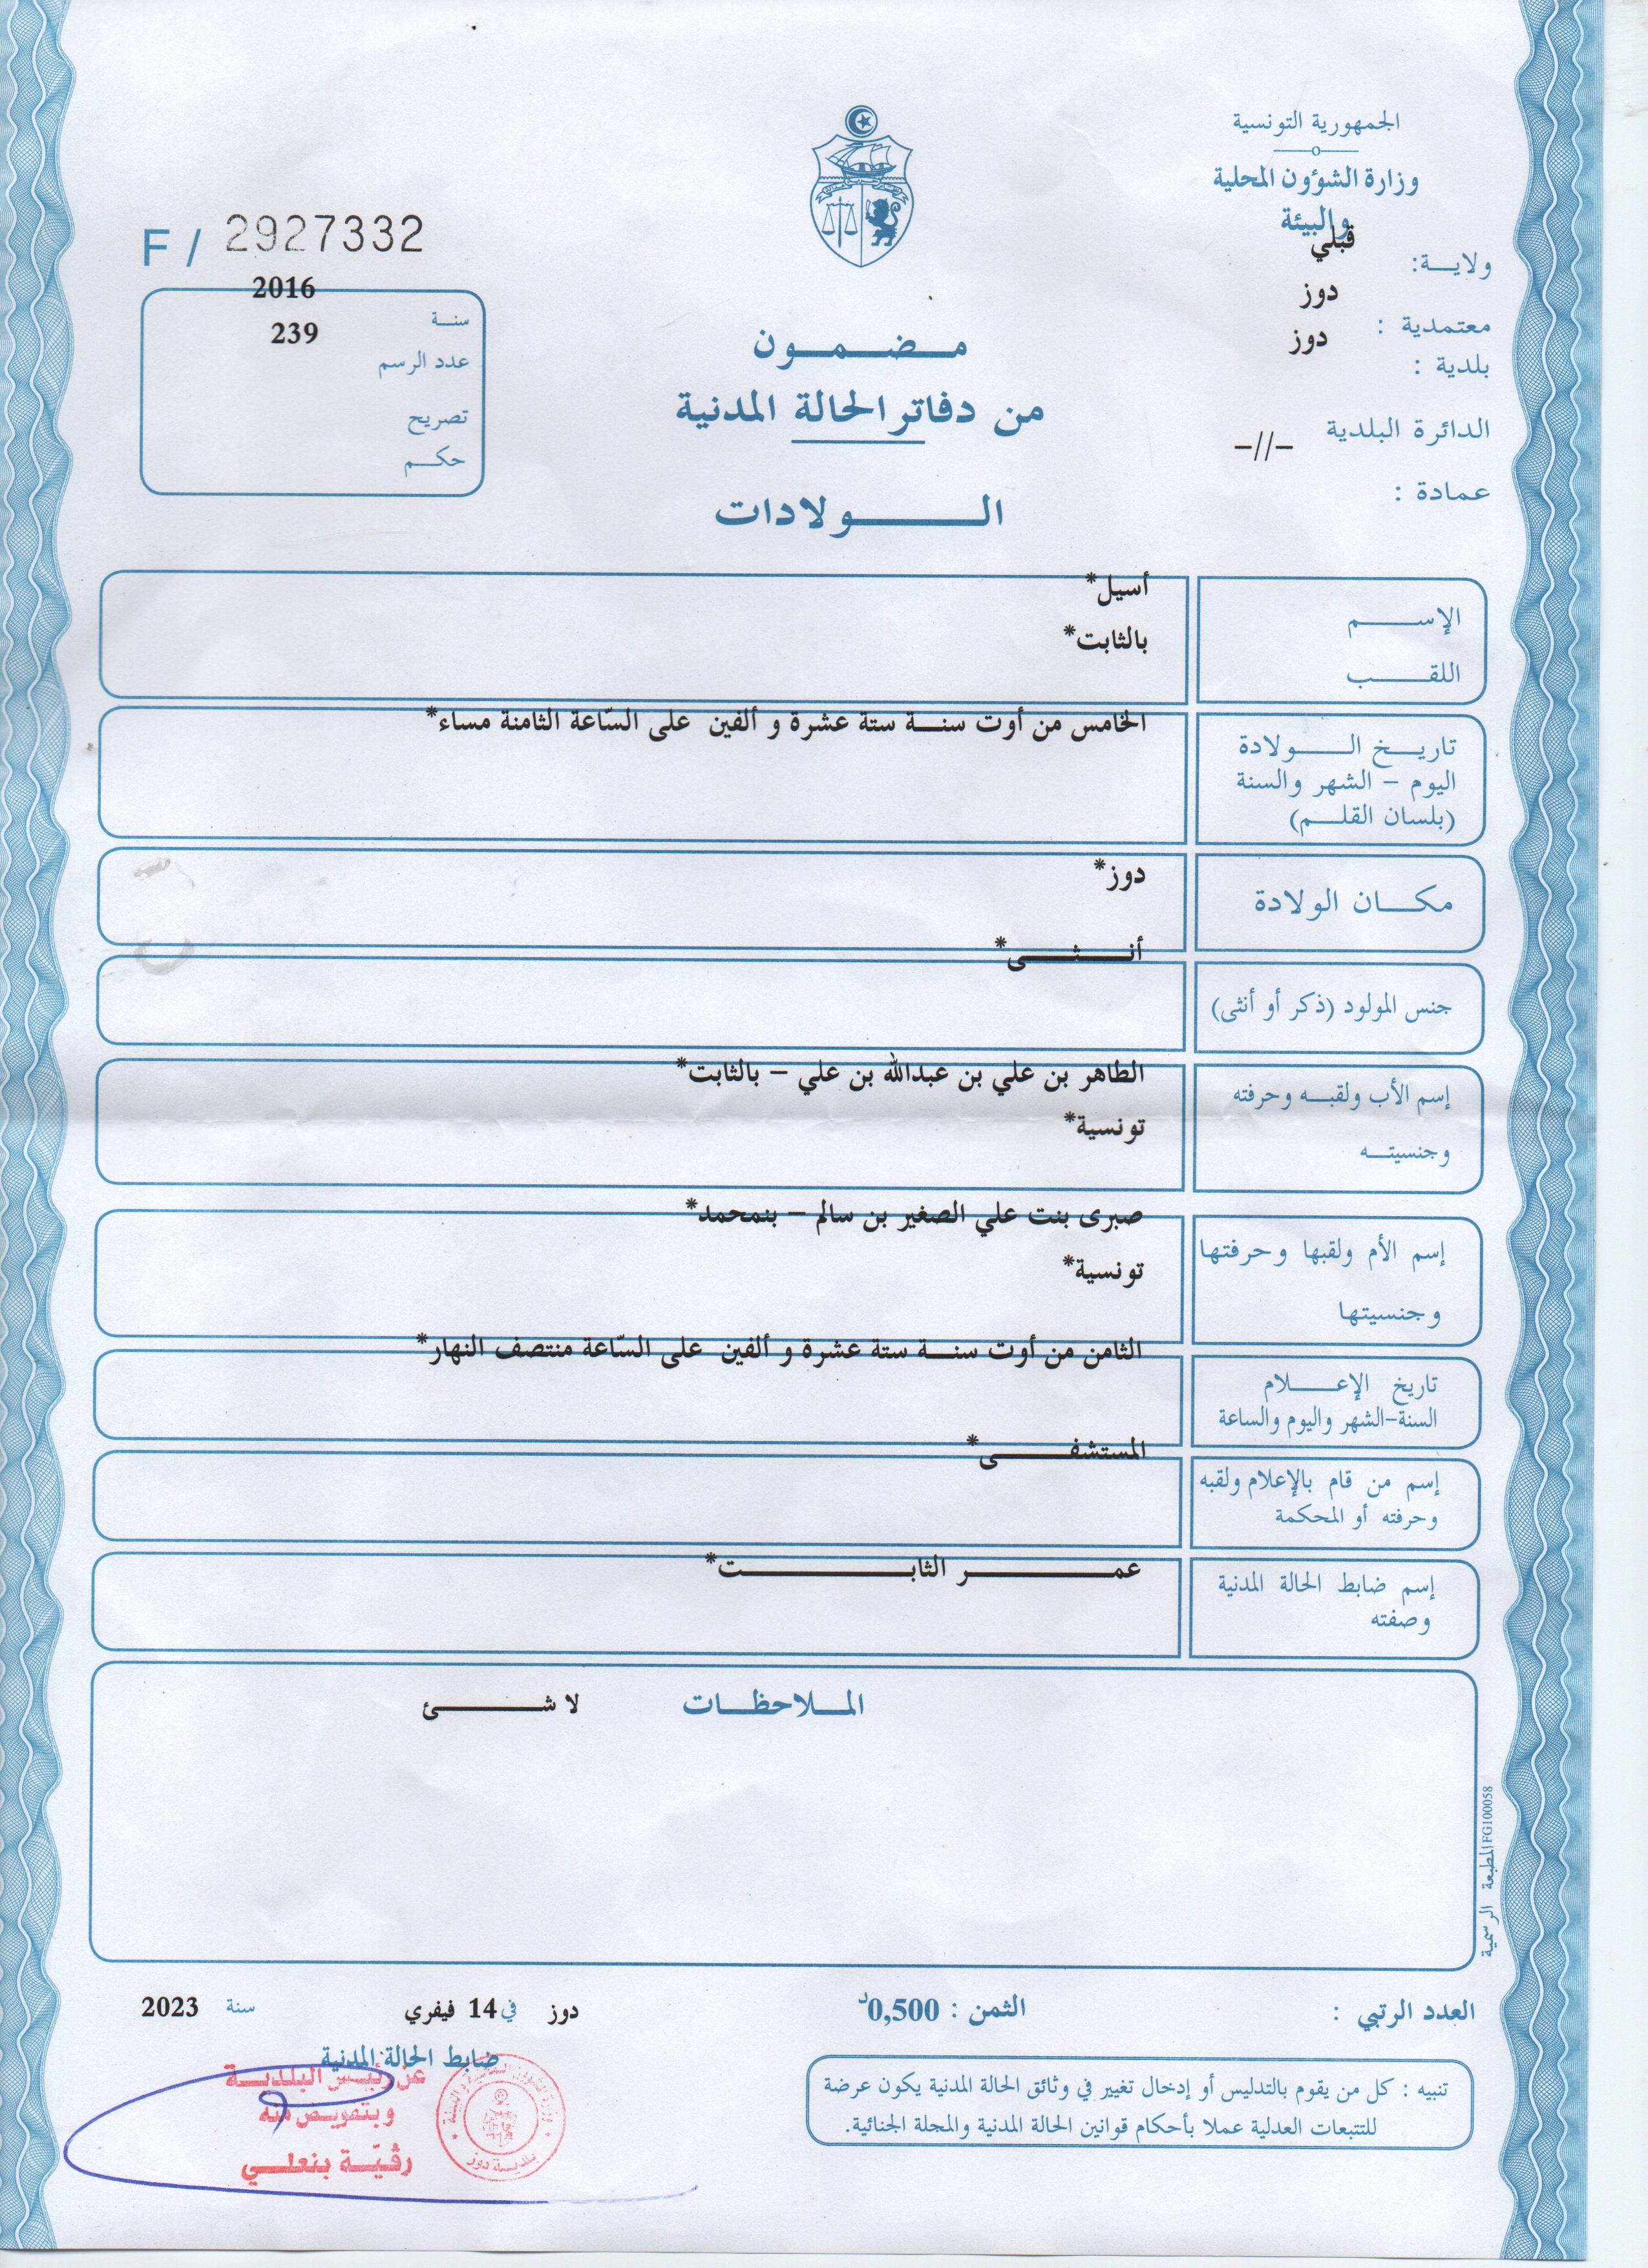 الجمهورية التونسية
وزارة الشؤون المحلية
والبيئة
ولاية: قبلي
معتمدية : دوز
بلدية : دوز
الدائرة البلدية -//-
عمادة :
F / 2927332
سنة 2016
عدد الرسم 239
تصريح
حكم
مضمون
من دفاتر الحالة المدنية
الولادات
الإسم أسيل*
اللقب بالثابت*
تاريخ الولادة
اليوم - الشهر والسنة
(بلسان القلم)
الخامس من أوت سنة ستة عشرة و ألفين على السّاعة الثامنة مساء*
مكان الولادة دوز*
جنس المولود (ذكر أو أنثى) أنثى*
إسم الأب ولقبه وحرفته
وجنسيته
الطاهر بن علي بن عبدالله بن علي - بالثابت*
تونسية*
إسم الأم ولقبها وحرفتها
وجنسيتها
صبرى بنت علي الصغير بن سالم - بنمحمد*
تونسية*
تاريخ الإعلام
السنة-الشهر واليوم والساعة
الثامن من أوت سنة ستة عشرة و ألفين على السّاعة منتصف النهار*
إسم من قام بالإعلام ولقبه
وحرفته أو المحكمة
المستشفى*
إسم ضابط الحالة المدنية
وصفته
عمر الثابت*
الملاحظات لا شئ
المطبعة الرسمية FG100058
العدد الرتبي :
الثمن : 0,500د
دوز في 14 فيفري سنة 2023
ضابط الحالة المدنية
عن رئيس البلدية
وبتفويض منه
رڨيّة بنعلي
بلدية دوز
تنبيه : كل من يقوم بالتدليس أو إدخال تغيير في وثائق الحالة المدنية يكون عرضة
للتتبعات العدلية عملا بأحكام قوانين الحالة المدنية والمجلة الجنائية.